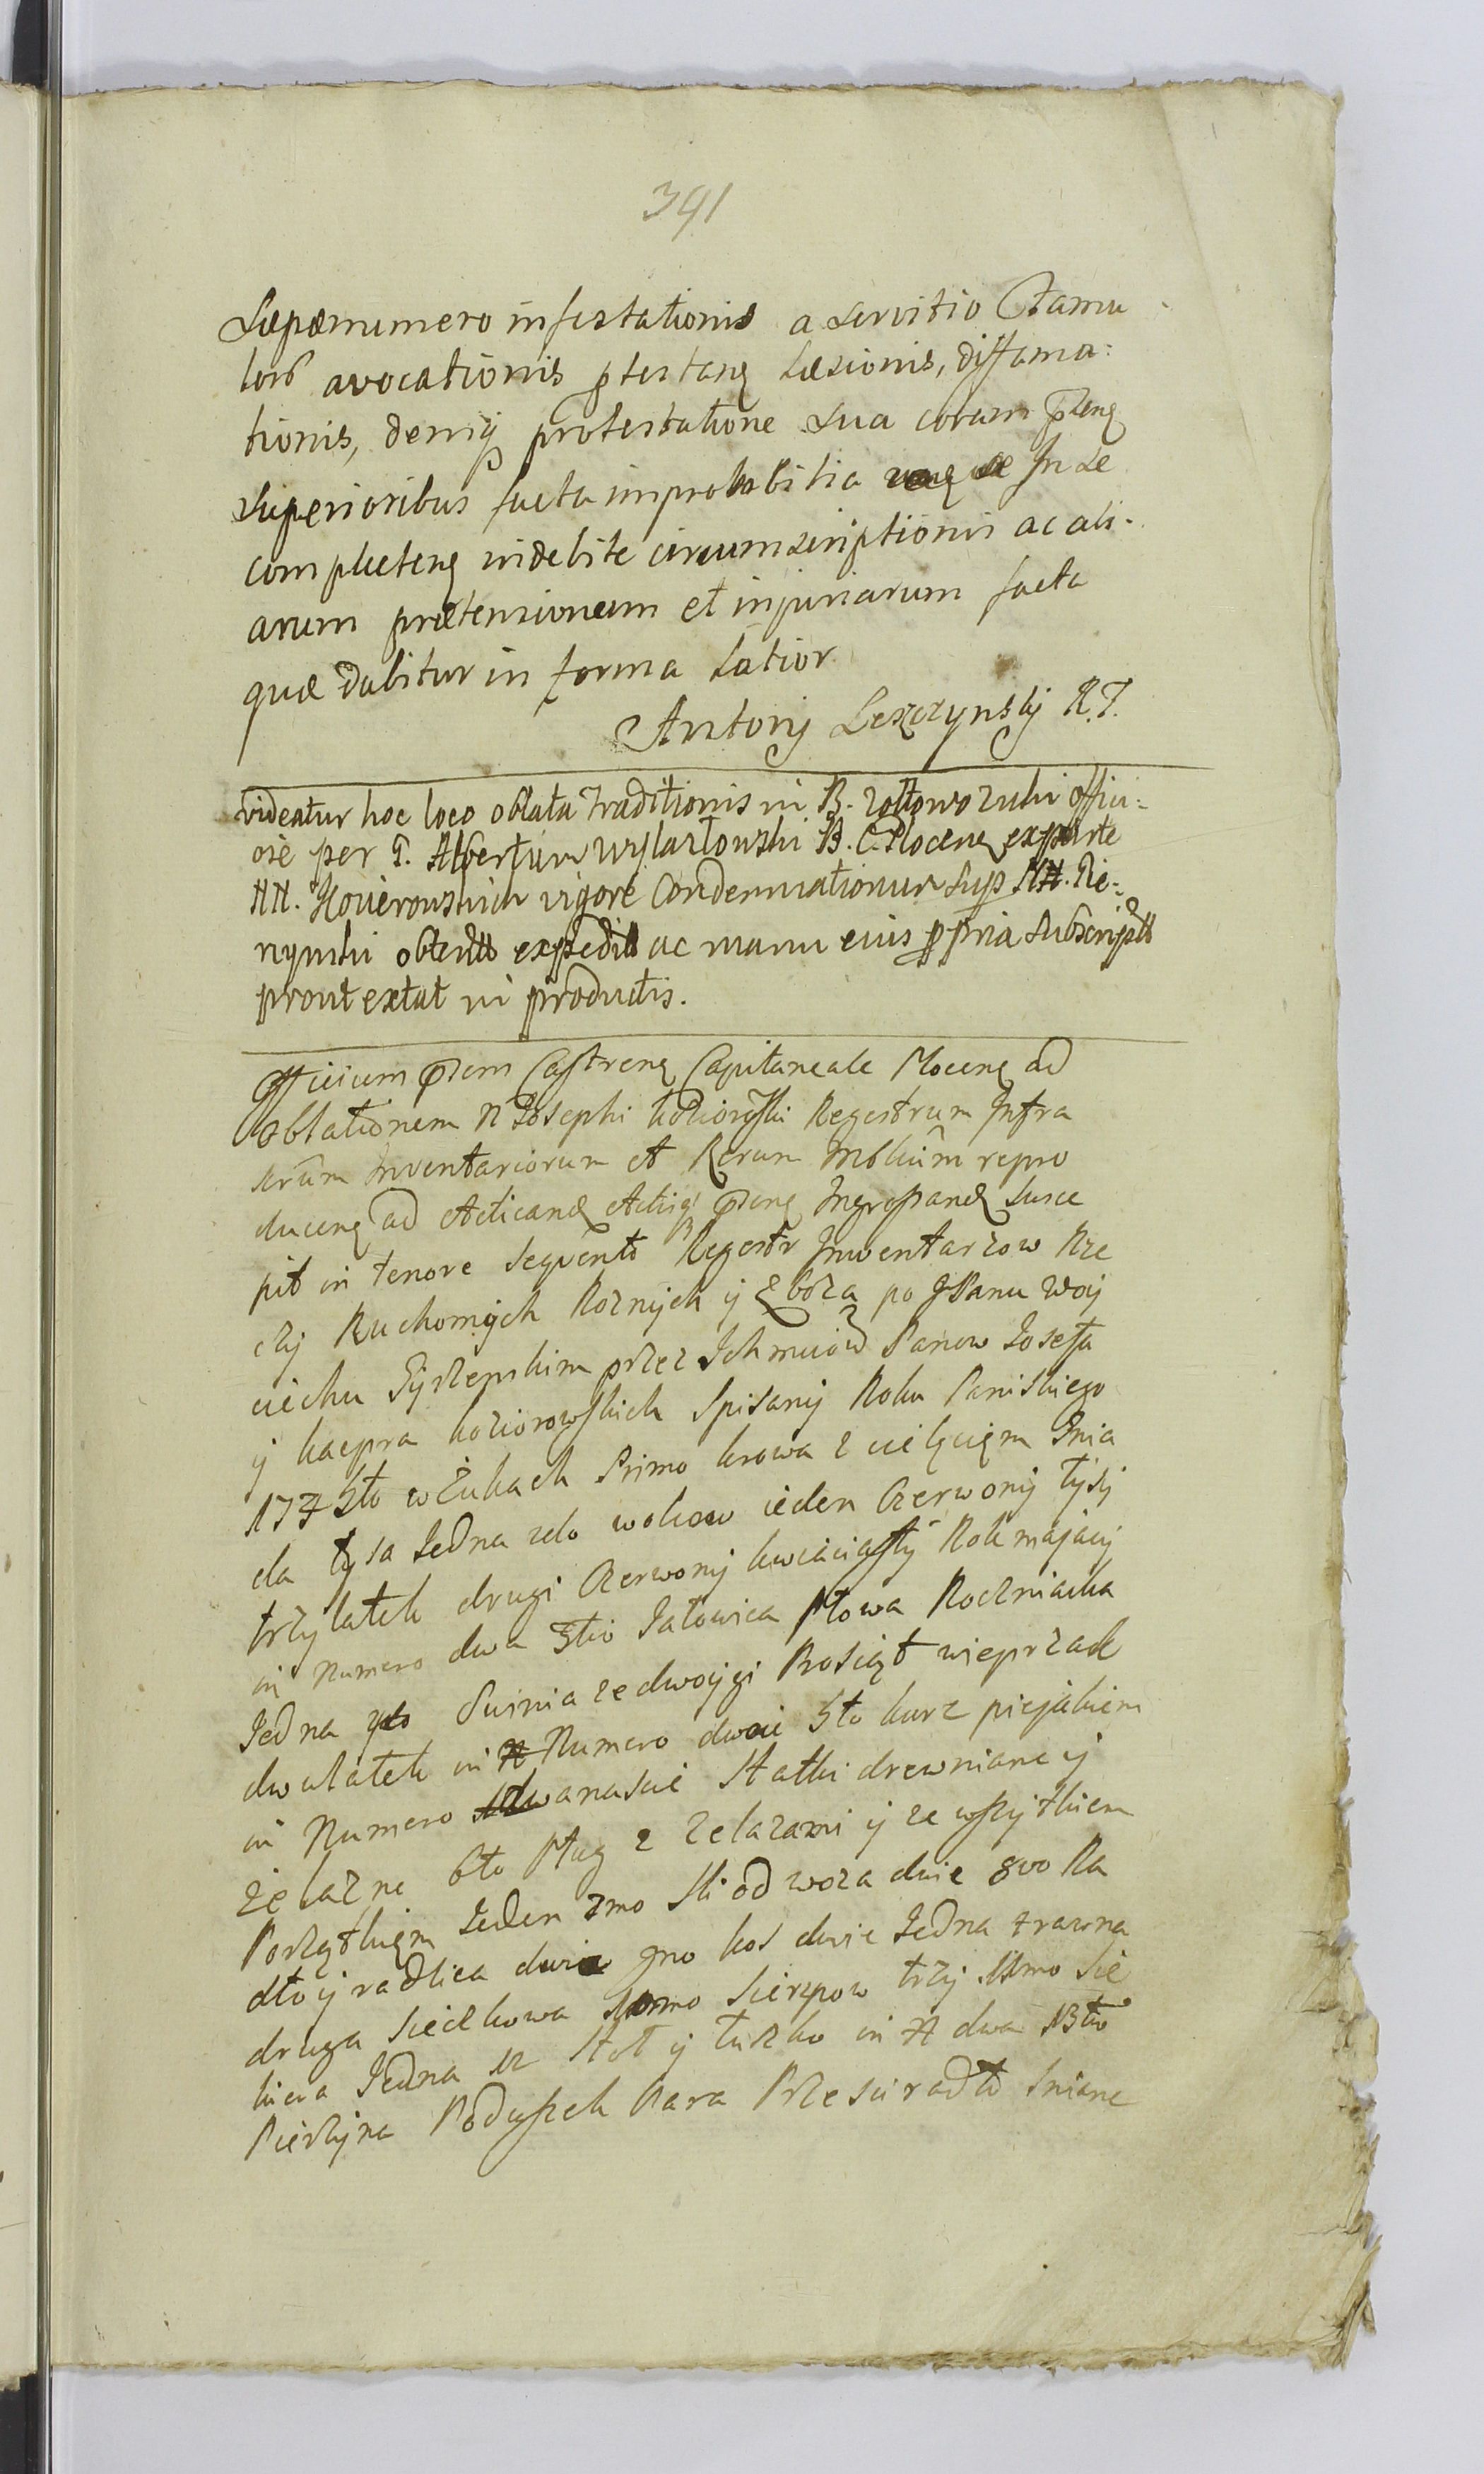 391
Sæpænumero infestationis a servitio Famu
lorũ avocationis ptestang Læsionis, diffama:
tionis, deniq protestatione sua coram pleng
superioribus facta improbabitia In se
complecteng indebite circumscriptionis ac ali-
arum prætensionum et injuriarum facta
quæ dabitur in forma Latior
Antony Leszczynsky R.T.
videatur hoc loco oblata Traditionis in B. Zoltowo Zuki officii-
ose per G. Albertum B. C. Plocens ex parte
NN. vigore Condemnationum sup NN. Pie-
nynski obtent expedit ac manu eius ppria subscript
prout extat in productis.
Officium pzens Castrens Capitaneale Plocens ad
Oblationem N Josephi Koziorowski Regestrum Infra
scrũm Inventariorum et Rerum Mbliũm repro
ducens ad Acticand Actisq pzens Ingrossand susce
pit in tenore sequenti Regestr Inwentarzow Rze
czy Ruchomych Roznych y Zboza po JPanu Woy
ciechu przez Ichmciow Panow Josefa
y Kacpra Koziorowskich Spisany Roku Panskiego
w Zukach Primo krowa z cielęcięm Gnia
da łysa Jedna 2do wolow ieden Czerwony łysy
trzylatek drugi Czerwony kwiaciasty Rok maiący
in Numero dwa 3tio Jalowica płowa Roczniacka
Jedna 4to Swinia ze dwoygi Prosiąt wieprzak
dwulatek in Numero dwie 5to kurz pieiakiem
in Numero dwanascie Statki drewniane y
żelazne 6to Pług z zelazami y ze wszytkiem
Porządkięm Jeden 7mo Ski od woza dwie 8vo Ra
dło y radlica dwie 9no kos dwie Jedna trawna
druga sieczkowa sierpow trzy 11mo Sie
kiera Jedna 12 Stol y łuszko in N dwa 13tio
Pierzyna Poduszek Para Przescieradło lniane